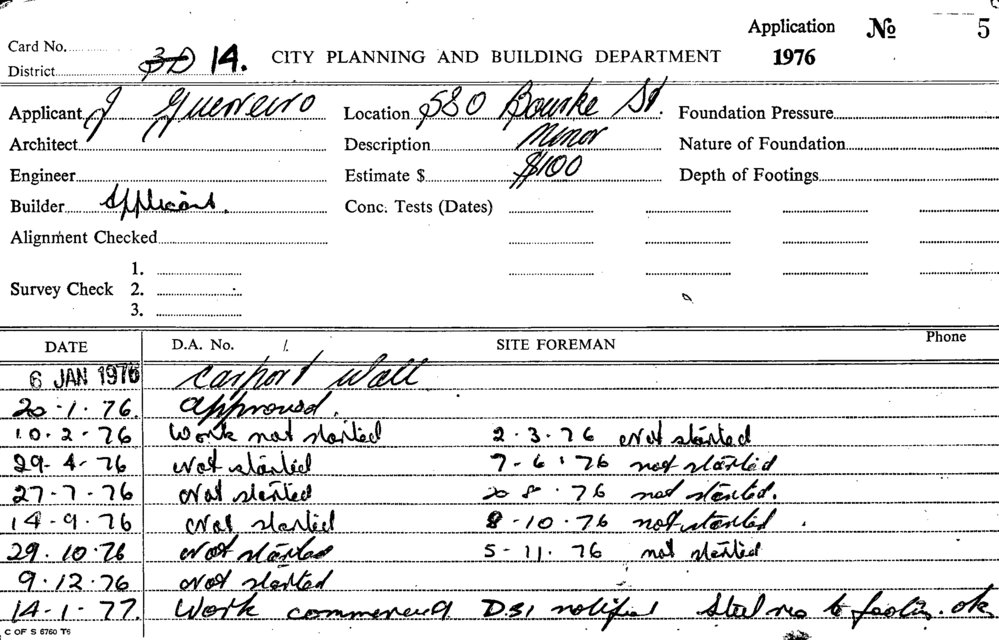 Application № 5
Card No.
CITY PLANNING AND BUILDING DEPARTMENT 1976
District 3D 14.
Applicant J Guerreiro Location 580 Bourke St. Foundation Pressure
Architect Description Minor Nature of Foundation
Engineer Estimate $ $100 Depth of Footings
Builder Applicant. Conc. Tests (Dates)
Alignment Checked
1.
Survey Check 2.
3.
DATE D.A. No. 1. SITE FOREMAN Phone
6 JAN 1976 Carport Wall
20-1-76. approved.
10-2-76 Work not started 2-3-76 Not started
29-4-76 Not started 7-6-76 not started
27-7-76 Not started 20 8-76 not started.
14-9-76 Not started 8-10-76 not started.
29.10.76 Not started 5-11.76 not started
9.12.76 Not started
14-1-77. Work commenced D.S.I notified Steel to footin. ok
C OF S 6760 T6